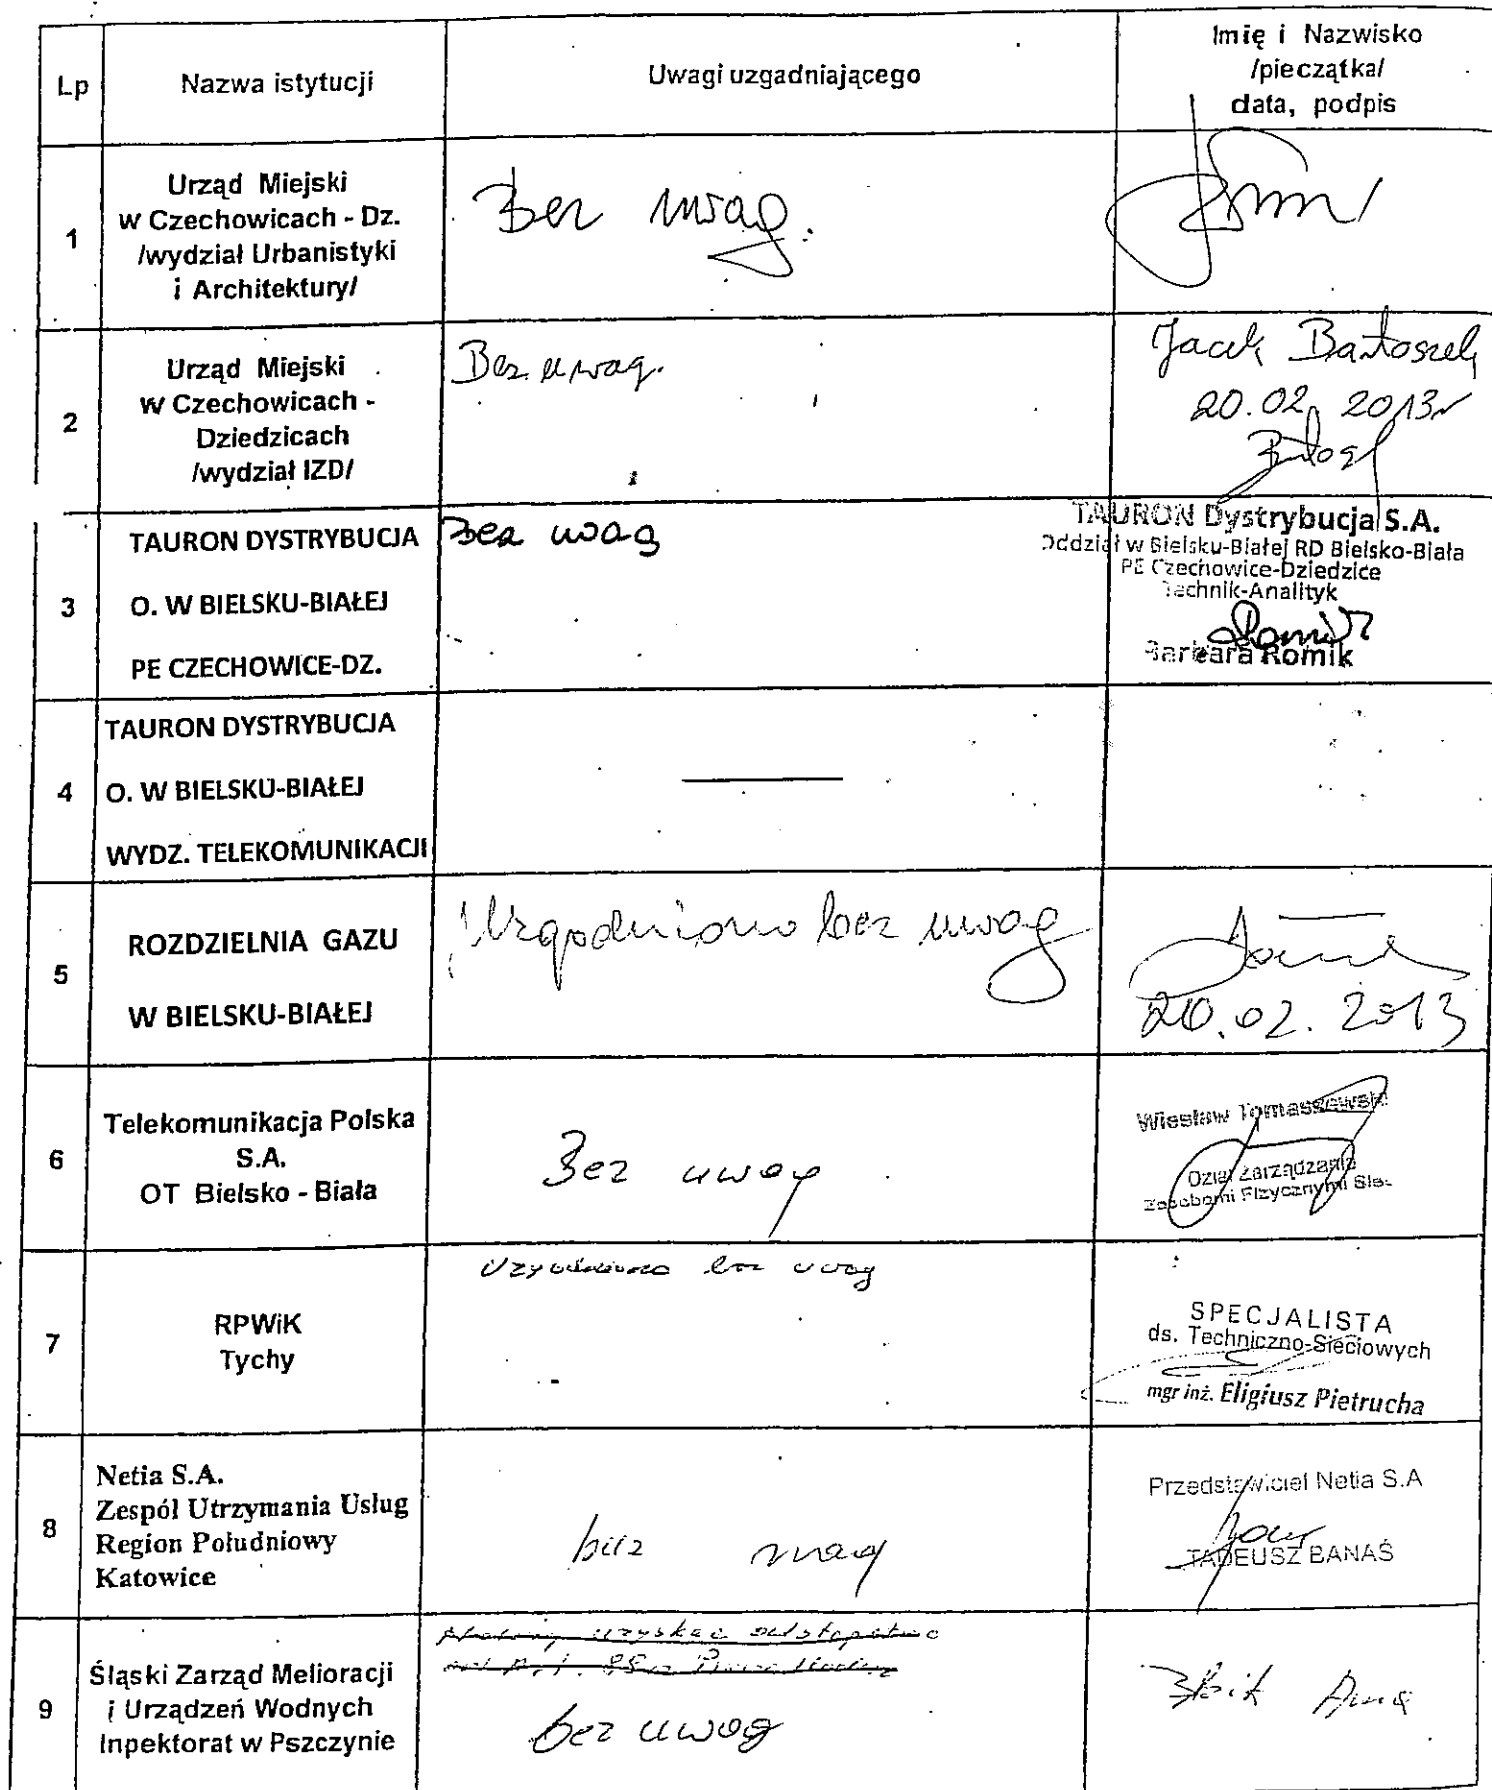 Lp
Nazwa istytucji
Uwagi uzgadniającego
Imię i Nazwisko
/pieczątka/
data, podpis
1
Urząd Miejski
w Czechowicach - Dz.
/wydział Urbanistyki
i Architektury/
Bez uwag.
2
Urząd Miejski
w Czechowicach -
Dziedzicach
/wydział IZD/
Bez uwag.
Jacek Bartoszek
20.02.2013r
3
TAURON DYSTRYBUCJA
O. W BIELSKU-BIAŁEJ
PE CZECHOWICE-DZ.
Bez uwag
TAURON Dystrybucja S.A.
Oddział w Bielsku-Białej RD Bielsko-Biała
PE Czechowice-Dziedzice
Technik-Analityk
Barbara Romik
4
TAURON DYSTRYBUCJA
O. W BIELSKU-BIAŁEJ
WYDZ. TELEKOMUNIKACJI
5
ROZDZIELNIA GAZU
W BIELSKU-BIAŁEJ
Uzgodniono bez uwag
20.02.2013
6
Telekomunikacja Polska
S.A.
OT Bielsko - Biała
Bez uwag
Wiesław Tomaszewski
Dział Zarządzania
Zasobami Fizycznymi Sieci
7
RPWiK
Tychy
Uzgodniono bez uwag
SPECJALISTA
ds. Techniczno-Sieciowych
mgr inż. Eligiusz Pietrucha
8
Netia S.A.
Zespół Utrzymania Usług
Region Południowy
Katowice
bez uwag
Przedstawiciel Netia S.A
TADEUSZ BANAŚ
9
Śląski Zarząd Melioracji
i Urządzeń Wodnych
Inpektorat w Pszczynie
uzyskać odstępstwo
bez uwag
Anna